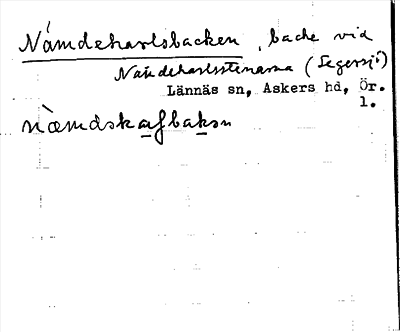 Nämdekarlsbacken, backe vid
Nämdekarlsstenarna (Segersjö)
Lännäs sn, Askers hd, Ör.
l.
næmdskafbakən